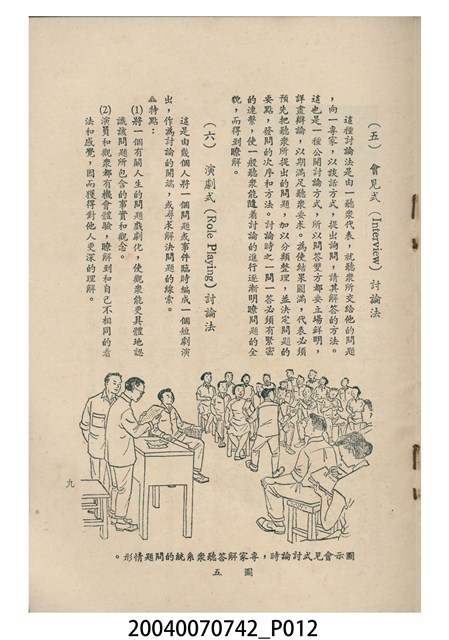 （五） 會見式 (Interview) 討論法
這種討論法是由一聽衆代表，就聽衆所交給他的問題
，向一專家，以談話方式，提出詢問，請其解答的方法。
這也是一種公開討論方式，所以問答雙方都要立場鮮明，
詳盡辯論，以期滿足聽衆要求。爲使結果圓滿，代表必須
預先把聽衆所提出的問題，加以分類整理，並決定問題的
要點，發問的次序和方法。討論時之一問一答必須有緊密
的連繫，使一般聽衆能隨着討論的進行逐漸明瞭問題的全
貌，而得到瞭解。
（六） 演劇式 (Role Playing) 討論法
這是由幾個人將一個問題或事件臨時編成一個短劇演
出，作爲討論的開端，或尋求解決問題的線索。
特點：
(1)將一個有關人生的問題戲劇化，使觀衆能更具體地認
識該問題所包含的事實和觀念。
(2)演員和觀衆都有機會體驗，瞭解到和自己不相同的看
法和感覺，因而獲得對他人更深的理解。
圖示會見式討論時，專家解答聽衆系統的問題情形。
圖 五
九
20040070742_P012